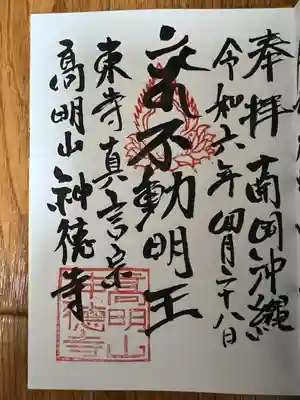 奉拝 南国沖縄
令和六年四月二十八日
不動明王
東寺真言宗
高明山神徳寺
高明山
神徳寺